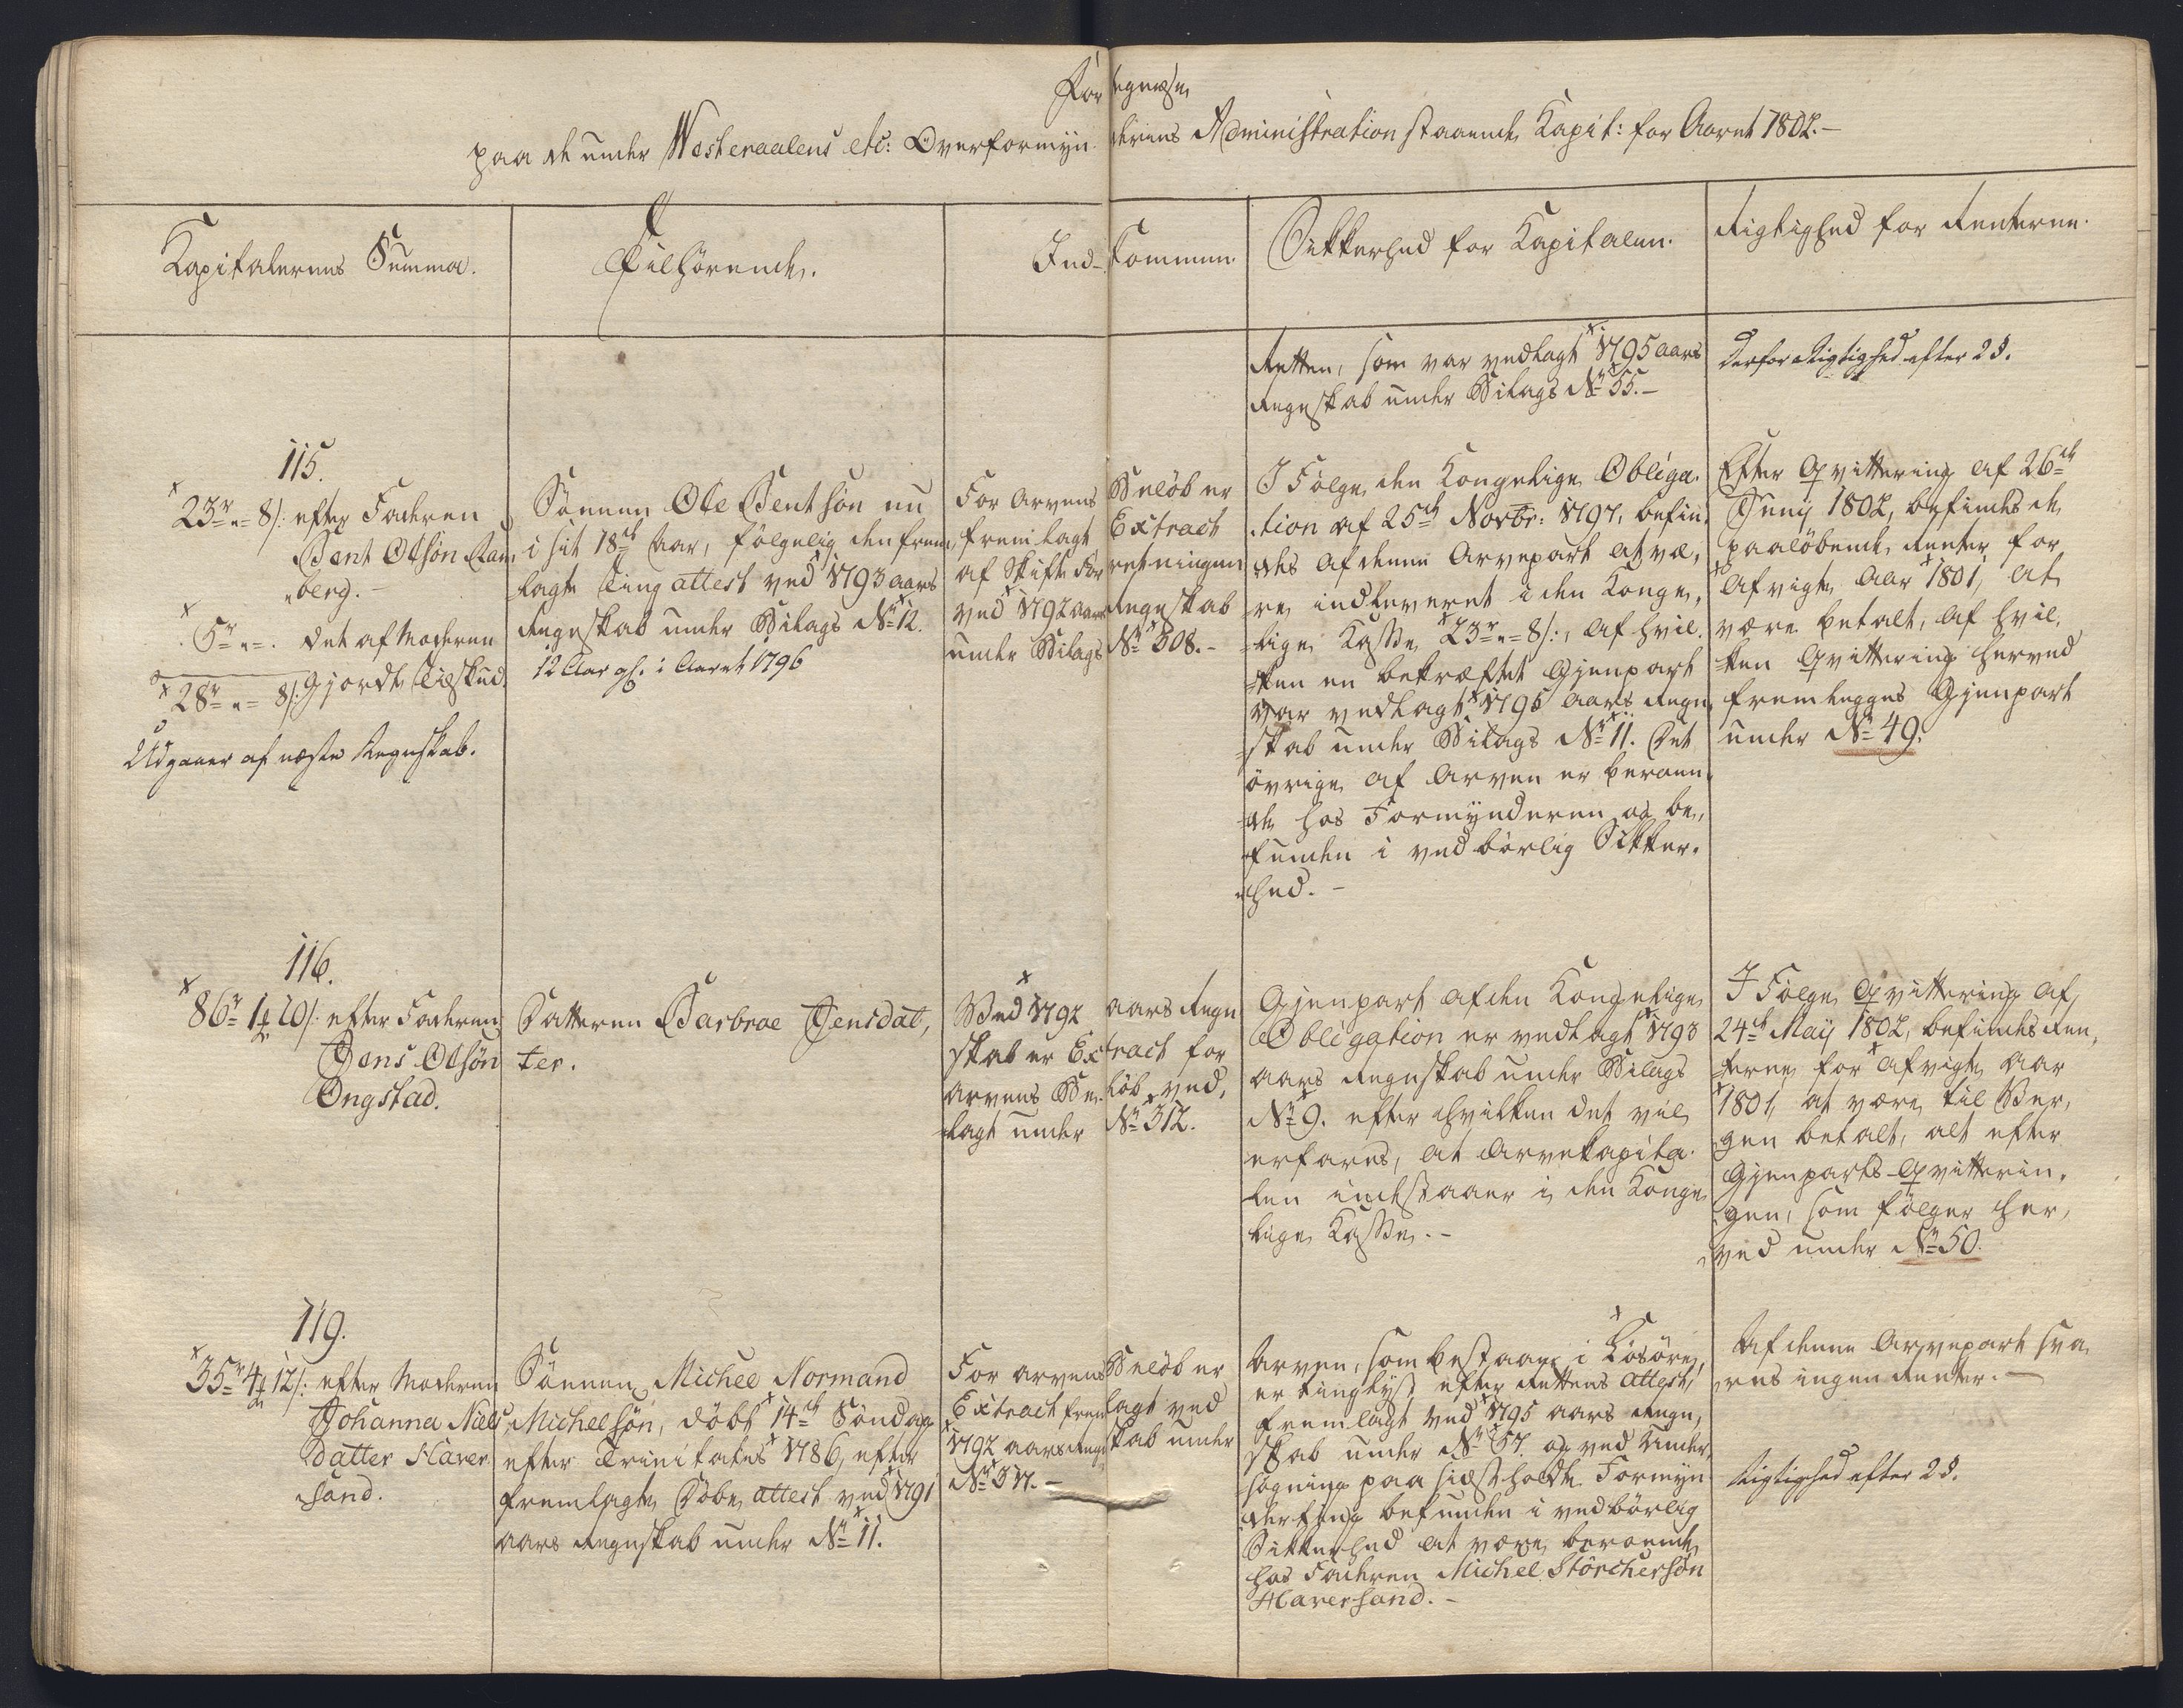 Fortegnelse
paa de under Westeraalens etc: Overformynderens Administration staaende Kapit: for Aaret 1802.-
Kapitalernes Summa.
Tilhørende.
Ind-kommen.
Sikkerhed for Kapitalen.
Rigtighed for Renterne.
Retten, som var vedlagt 1795 aars
Regnskab under Bilags No 55.-
Derfor Rigtighed efter 2 §.
115.
23r "= 8/: efter Faderen
Bent Olsøn
berg.-
5r "=. det af Moderen
28r "= 8/: Gjordte Tilskud.
Udgaaer af næste Regnskab.
Sønnen Ole Bentsøn nu
i sit 18de Aar, følgelig den frem
lagte Ting attest ved 1793 aars
Regnskab under Bilags No 12.
12 Aar gl. i Aaret 1796
For Arvens Beløb er
fremlagt Extract
af Skifte Forretningen
ved 1792 aars Regnskab
under Bilags No 308.-
I Følge den Kongelige Obliga-
tion af 25de Novbr: 1797, befin-
des af denne Arvepart at væ-
re indleveret i den Konge-
lige Kasse 23r "= 8/:, af hvil-
ken en bekræftet Gjenpart
var vedlagt 1795 aars Regn-
skab under Bilags No 11. Det
øvrige af Arven er beroen-
de hos Formynderen og be-
funden i vedbørlig Sikker-
hed.-
Efter Qvittering af 26de
Junij 1802, befindes de
paaløbende Renter for
afvigte Aar 1801, at
være betalt, af hvil-
ken Qvittering herved
fremlegges Gjenpart
under No 49.
116.
86r 1 # 20/: efter Faderen
Jens Olsøn
Ongstad.
Datteren Barbroe Jensdat-
ter.
Ved 1792 aars Regn
skab er Extract for
Arvens Beløb ved-
lagt under No 312.
Gjenpart af den Kongelige
Obligation er vedlagt 1793
aars Regnskab under Bilags
No 9. efter hvilken det vil
erfares, at Arvekapita-
len indestaaer i den Konge
lige Kasse.-
I Følge Qvittering af
24de Maij 1802, befindes Ren-
terne for afvigte Aar
1801, at være til Ver-
gen betalt, alt efter
Gjenparts-Qvitterin-
gen, som følger her-
ved under No 50.
119.
35r 4 # 12/: efter Moderen
Johanna Niels
Datter Haver
sand.
Sønnen Michel Normand
Michelsøn, døbt 14de Søndag
efter Trinitatis 1786, efter
fremlagte Døbe attest ved 1791
aars Regnskab under No 11.
For arvens Beløb er
Extract fremlagt ved
1792 aars Regnskab under
No 317.-
Arven, som bestaaer i Løsøre,
er tinglyst efter Rettens Attest,
fremlagt ved 1795 aars Regn-
skab under No 57. og ved Under-
søgning paa sidstholdte Formyn
derting befunden i vedbørlig
Sikkerhed at være beroende
hos Faderen Michel Störchersøn
Haversand.-
Af denne Arvepart sva
res ingen Renter.-
Rigtighed efter 2 §.